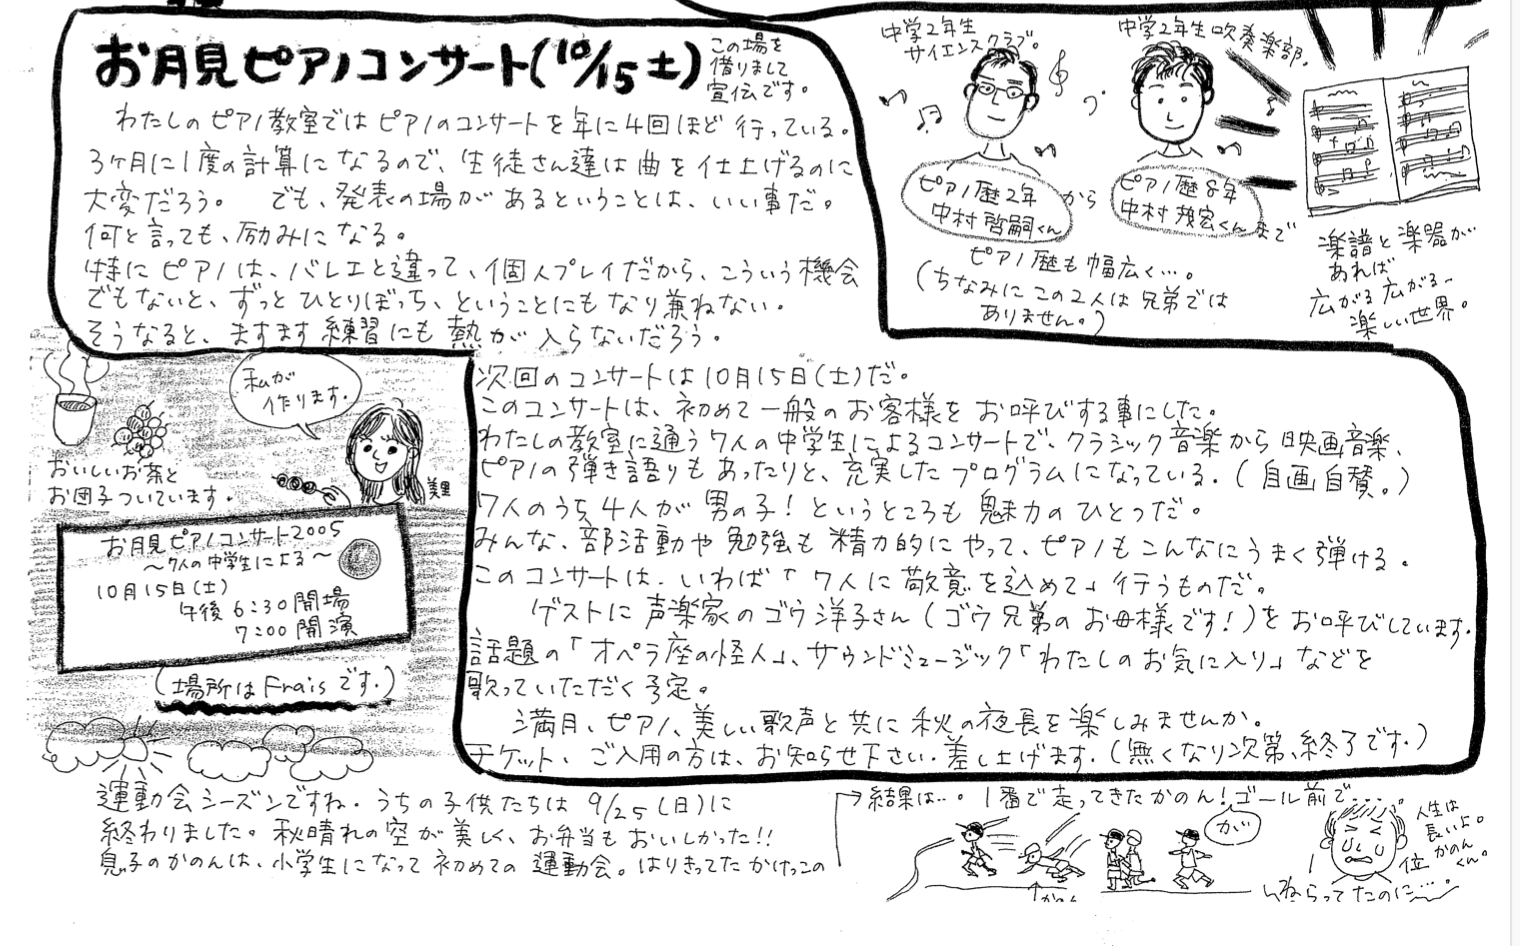 お月見ピアノコンサート(10/15土)
この場を
借りまして
宣伝です。
わたしのピアノ教室ではピアノのコンサートを年に4回ほど行っている。
3ヶ月に1度の計算になるので、生徒さん達は曲を仕上げるのに
大変だろう。 でも、発表の場があるということは、いい事だ。
何と言っても、励みになる。
特にピアノは、バレエと違って、個人プレイだから、こういう機会
でもないと、ずっとひとりぼっち、ということにもなり兼ねない。
そうなると、ますます練習にも熱が入らないだろう。
中学2年生
サイエンスクラブ。
中学2年生吹奏楽部。
ピアノ歴2年
中村啓嗣くん
から
ピアノ歴8年
中村 宏くん
まで
ピアノ歴も幅広く…。
(ちなみにこの2人は兄弟では
ありません。)
楽譜と楽器が
あれば
広がる広がる〜
楽しい世界。
私が
作ります。
おいしいお茶と
お団子ついています。
美里
お月見ピアノコンサート2005
〜7人の中学生による〜
10月15日(土)
午後6:30開場
7:00開演
(場所はFraisです。)
次回のコンサートは10月15日(土)だ。
このコンサートは、初めて一般のお客様をお呼びする事にした。
わたしの教室に通う7人の中学生によるコンサートで、クラシック音楽から映画音楽、
ピアノの弾き語りもあったりと、充実したプログラムになっている。(自画自賛。)
7人のうち4人が男の子!というところも魅力のひとつだ。
みんな、部活動や勉強も精力的にやって、ピアノもこんなにうまく弾ける。
このコンサートは、いわば「7人に敬意を込めて」行うものだ。
ゲストに声楽家のゴウ洋子さん(ゴウ兄弟のお母様です!)をお呼びしています。
話題の「オペラ座の怪人」、サウンドミュージック「わたしのお気に入り」などを
歌っていただく予定。
満月、ピアノ、美しい歌声と共に秋の夜長を楽しみませんか。
チケット、ご入用の方は、お知らせ下さい。差し上げます。(無くなり次第、終了です。)
運動会シーズンですね。うちの子供たちは9/25(日)に
終わりました。秋晴れの空が美しく、お弁当もおいしかった!!
息子のかのんは、小学生になって初めての運動会。はりきってたかけっこの
→結果は…。1番で走ってきたかのん!ゴール前で…
がい
↑かのん
人生は
長いよ。
かのん
くん。
1位
ねらってたのに…。